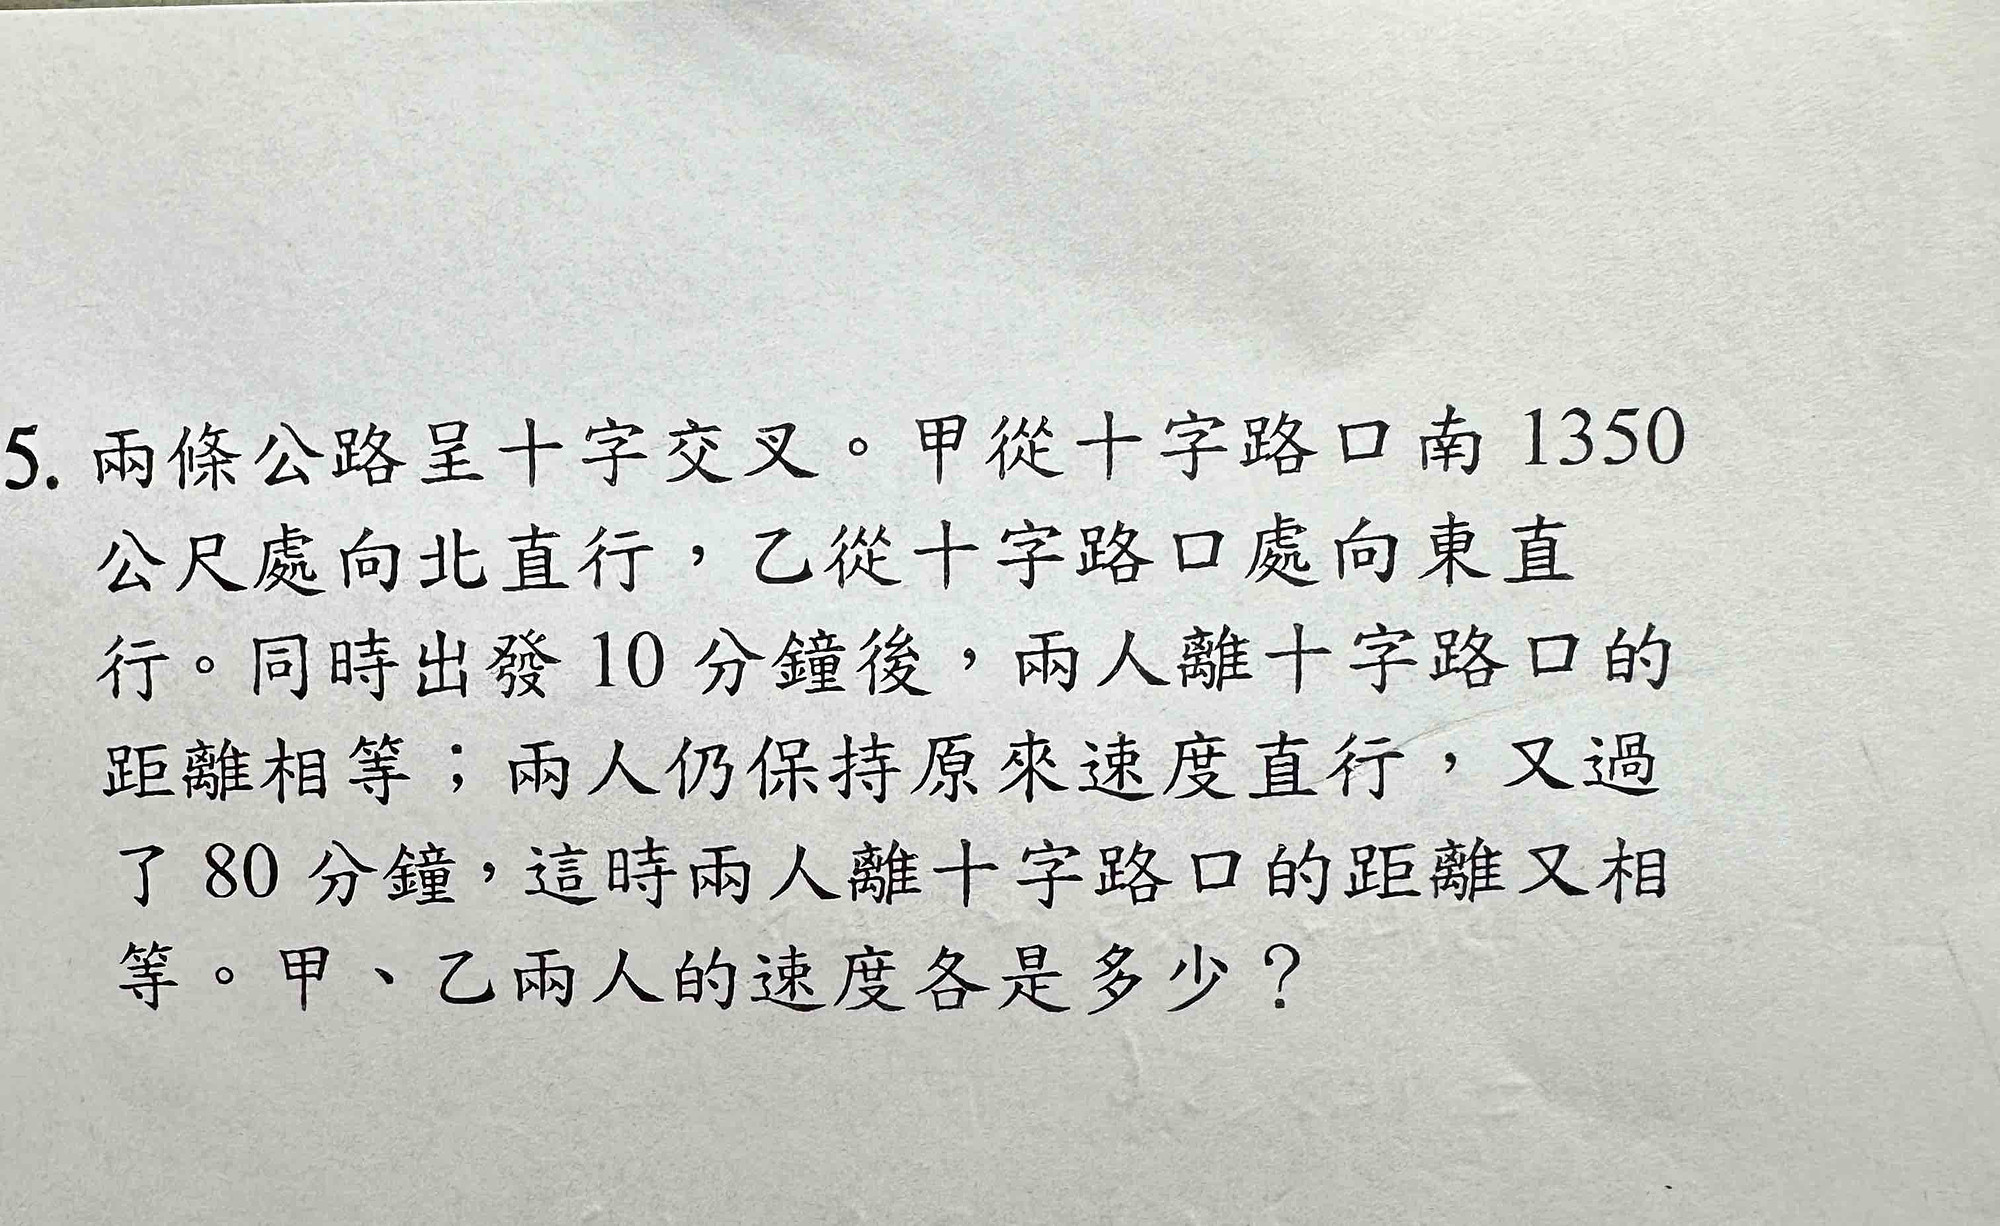 5. 兩條公路呈十字交叉。甲從十字路口南 1350
公尺處向北直行，乙從十字路口處向東直
行。同時出發 10 分鐘後，兩人離十字路口的
距離相等；兩人仍保持原來速度直行，又過
了 80 分鐘，這時兩人離十字路口的距離又相
等。甲、乙兩人的速度各是多少？